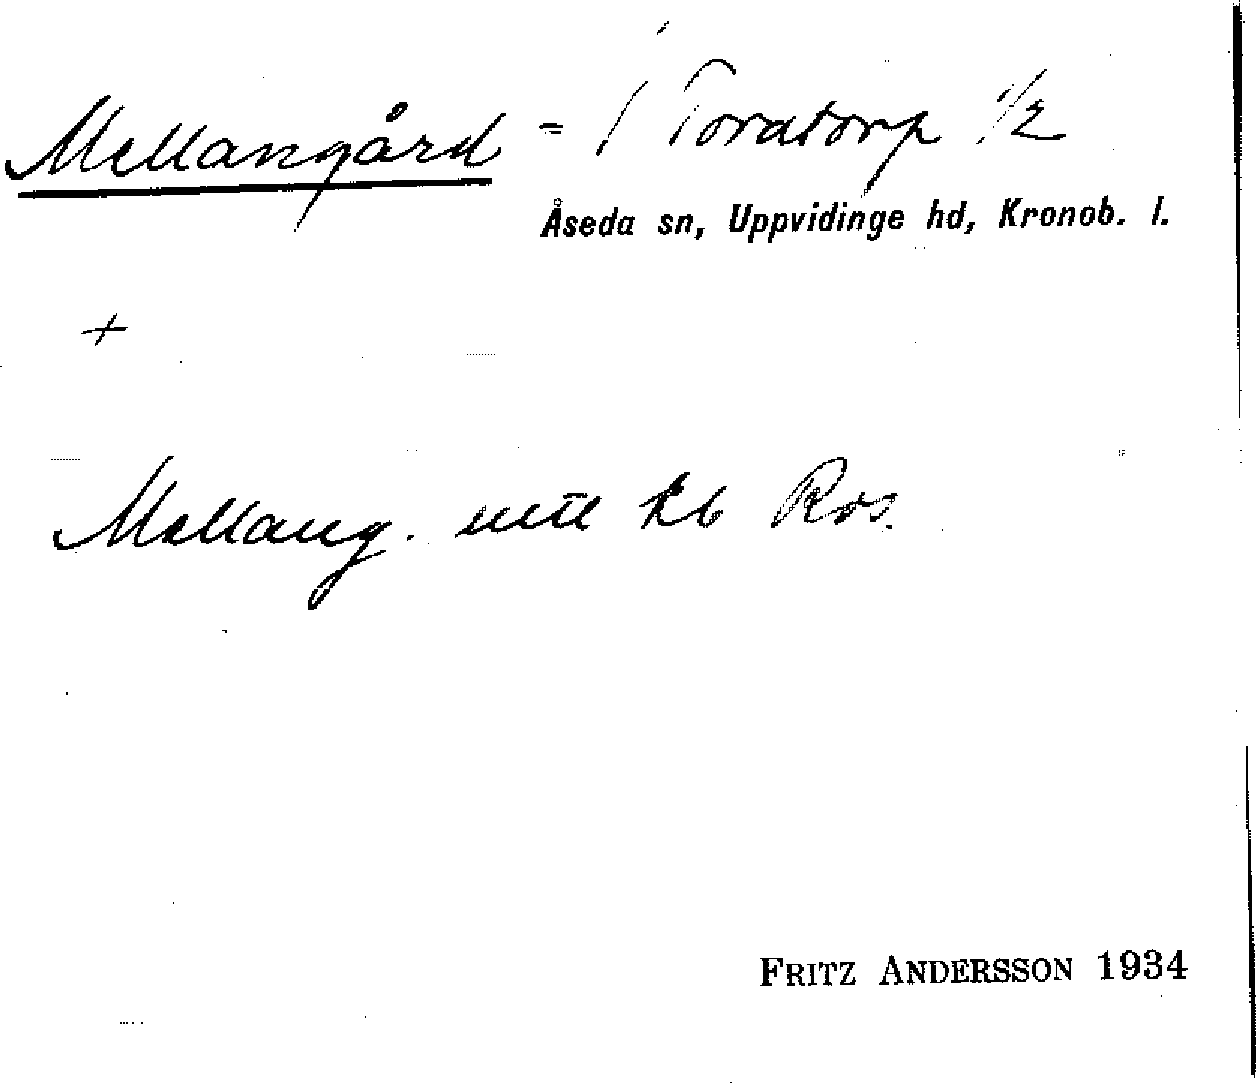 Mellangård = i Toratorp 1/2
Åseda sn, Uppvidinge hd, Kronob. l.
+
Mellang.
FRITZ ANDERSSON 1934